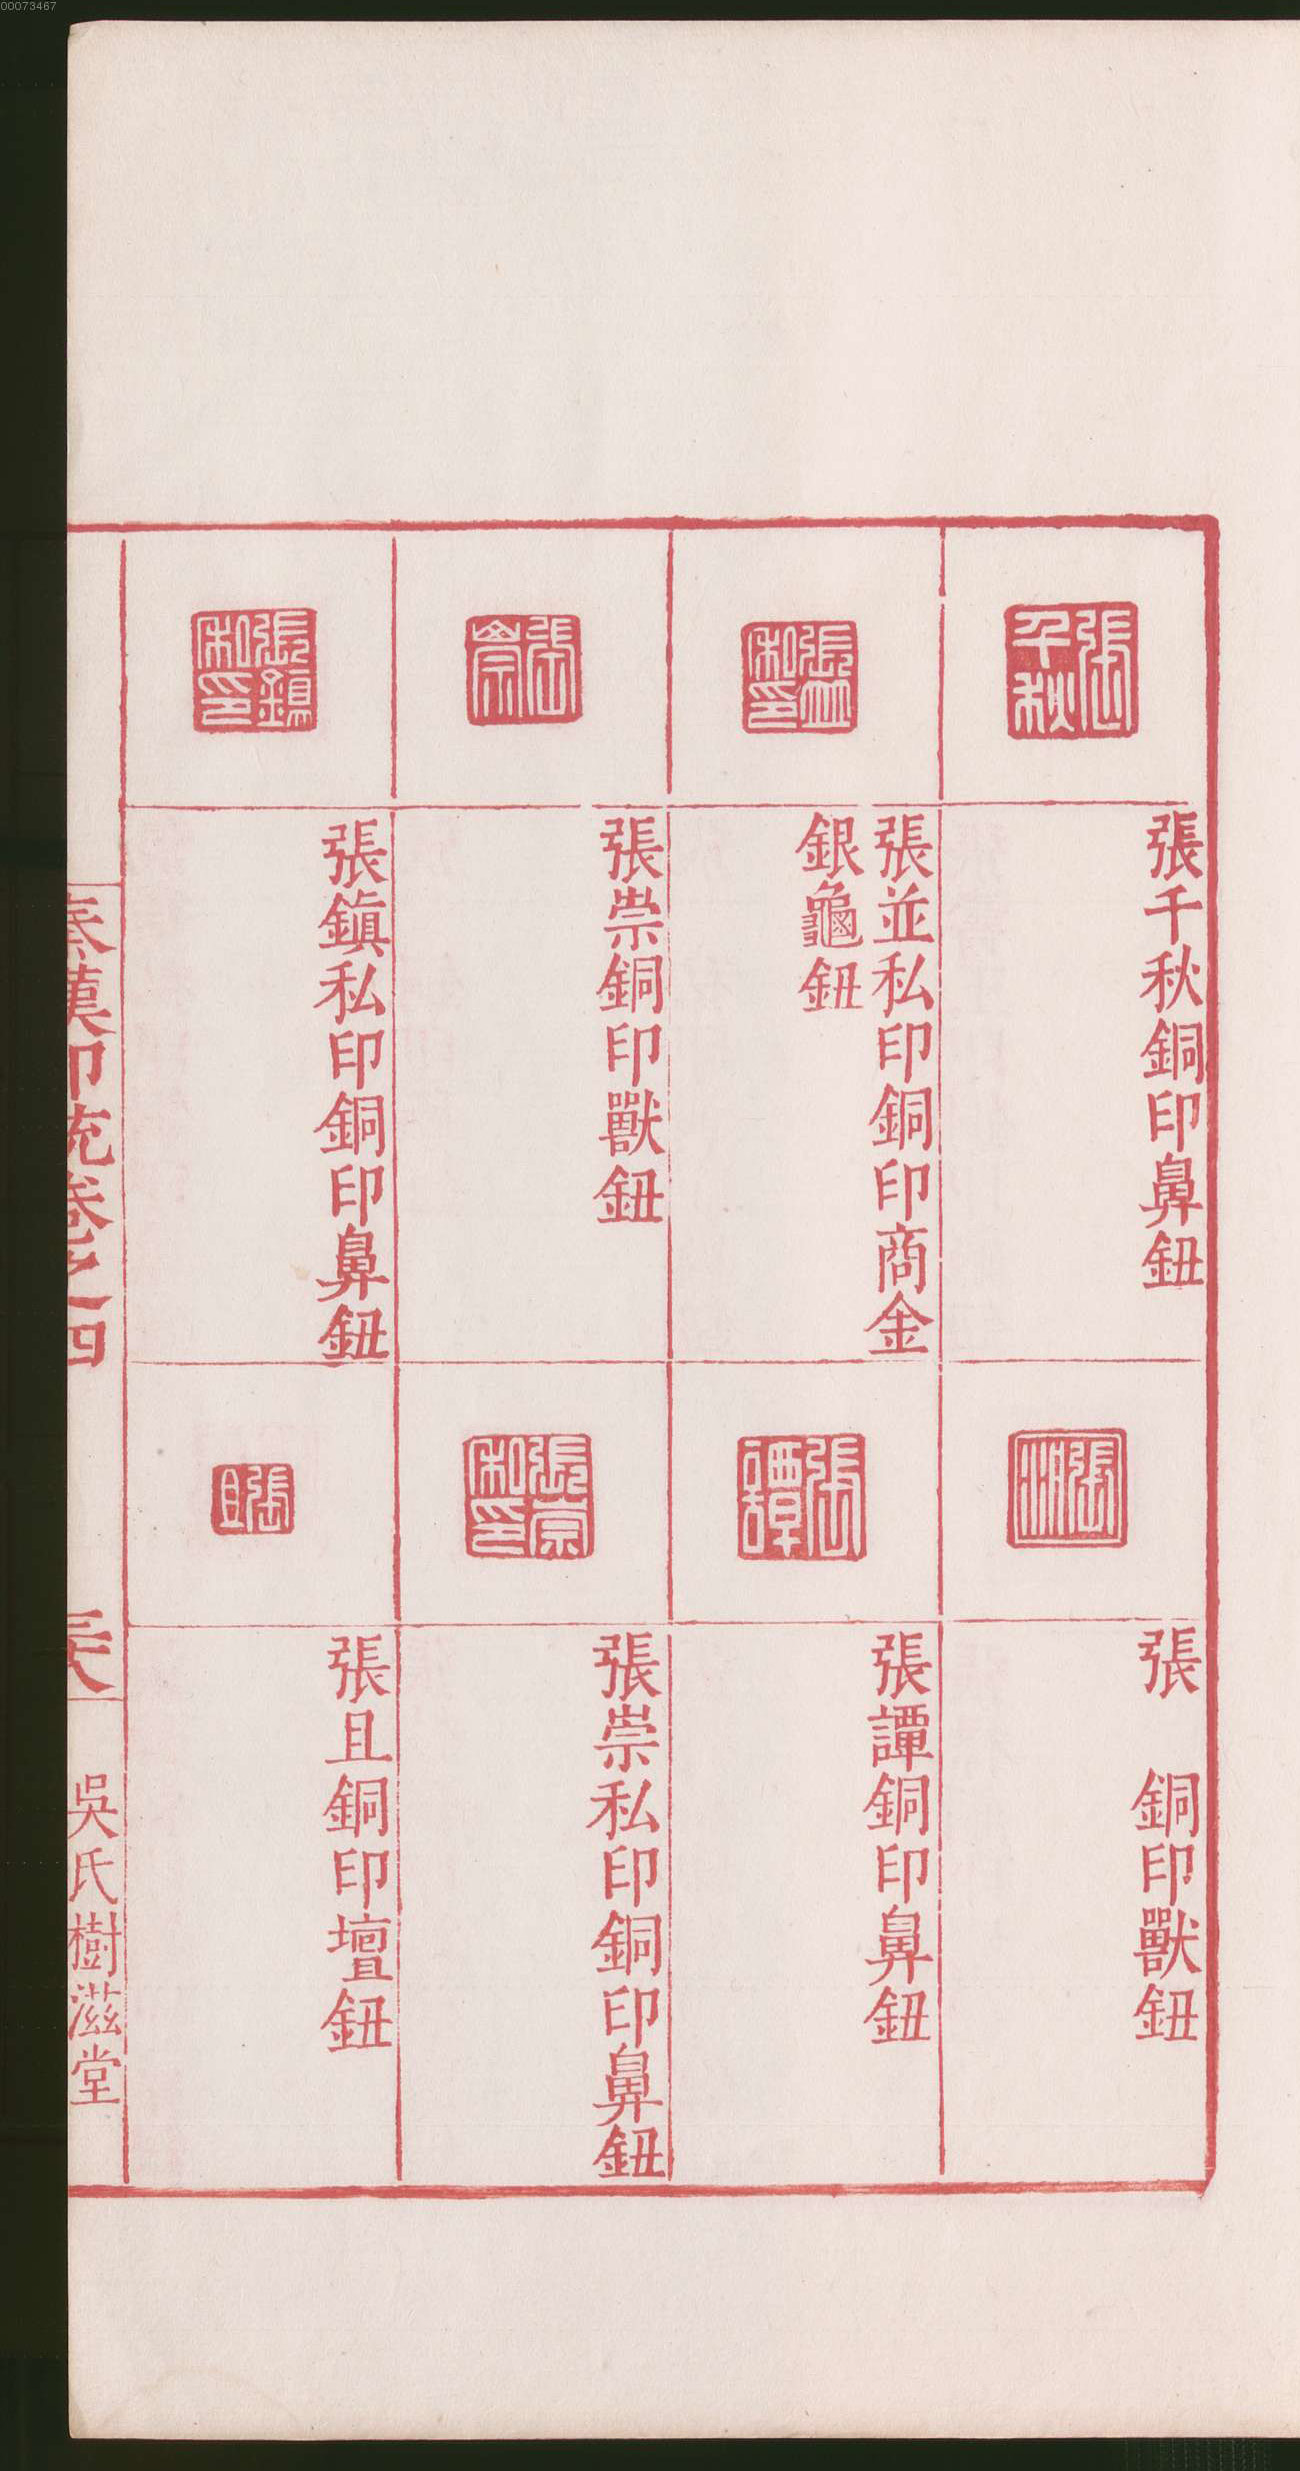 00073467
張千秋
張千秋銅印鼻鈕
張並私印
張並私印銅印商金
銀龜鈕
張崇
張崇銅印獸鈕
張鎮私印
張鎮私印銅印鼻鈕
張
張 銅印獸鈕
張譚
張譚銅印鼻鈕
張崇私印
張崇私印銅印鼻鈕
張且
張且銅印壇鈕
秦漢印統卷之四
吳氏樹滋堂